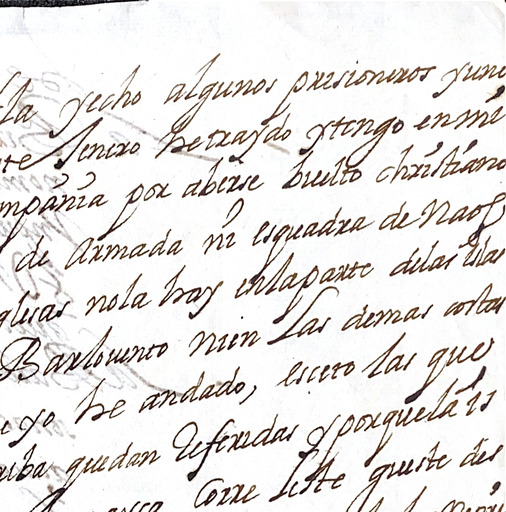 lla y echo algunos prisioneros y uno
ste Jenero he traydo y tengo en mi
mpañia por aberse buelto christiano
de Armada ni esquadra de naos
glesas no la hay en la parte de las islas
Barlovento ni en las demas costas
e yo he andado, eseto las que
riba quedan Referidas y porque la is
corre leste gueste des